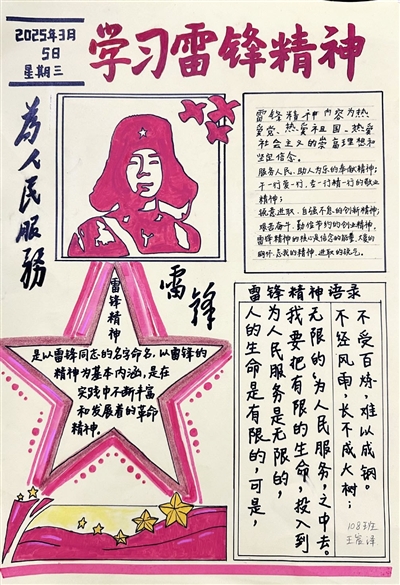 2025年3月
5日
星期三
学习雷锋精神
为人民服務
雷锋
雷锋精神内容为热
爱党、热爱祖国、热爱
社会主义的崇高理想和
坚定信念。
服务人民、助人为乐的奉献精神;
干一行爱一行、专一行精一行的敬业
精神;
锐意进取、自强不息的创新精神;
艰苦奋斗、勤俭节约的创业精神,
雷锋精神的核心是信念的能量、大爱的
胸怀、忘我的精神、进取的锐气。
雷锋精神
是以雷锋同志的名字命名,以雷锋的
精神为基本内涵,是在
实践中不断丰富
和发展着的革命
精神。
雷锋精神语录
不受百炼,难以成钢。
不经风雨,长不成大树;
无限的,为人民服务,之中去。
我要把有限的生命,投入到
为人民服务是无限的,
人的生命是有限的,可是,
108班